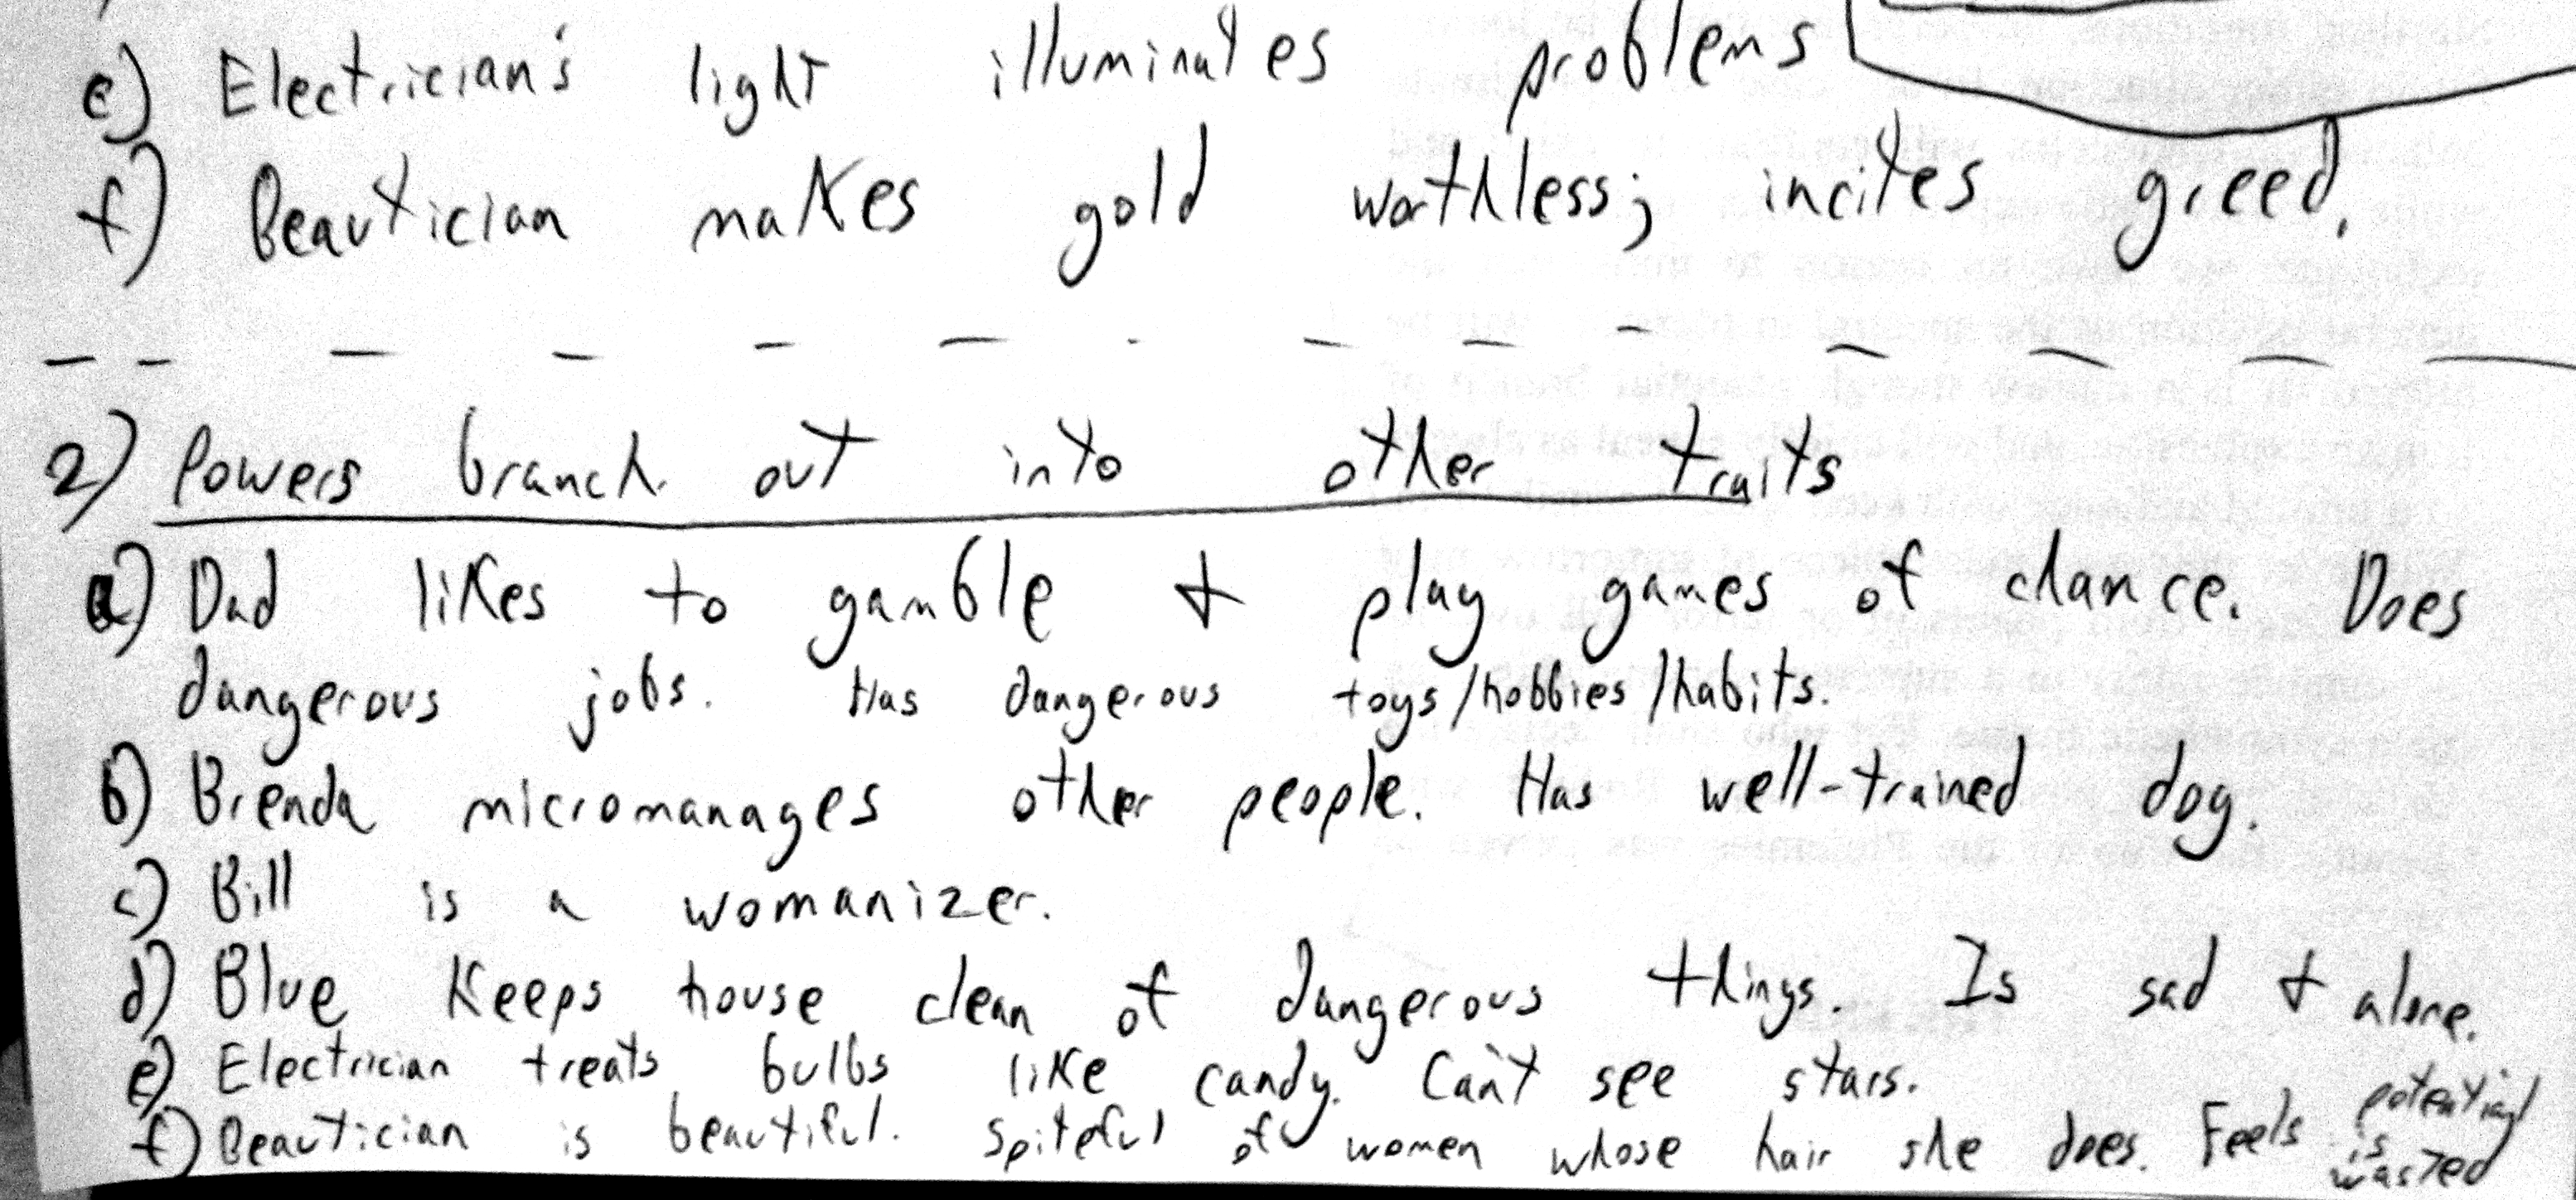 e) Electrician's light illuminates problems
f) Beautician makes gold worthless; incites greed.
2) Powers branch out into other traits
a) Dad likes to gamble & play games of chance. Does
dangerous jobs. Has dangerous toys/hobbies/habits.
b) Brenda micromanages other people. Has well-trained dog.
c) Bill is a womanizer.
d) Blue keeps house clean of dangerous things. Is sad & alone.
e) Electrician treats bulbs like candy. Can't see stars.
f) Beautician is beautiful. Spiteful of women whose hair she does. Feels potential is wasted